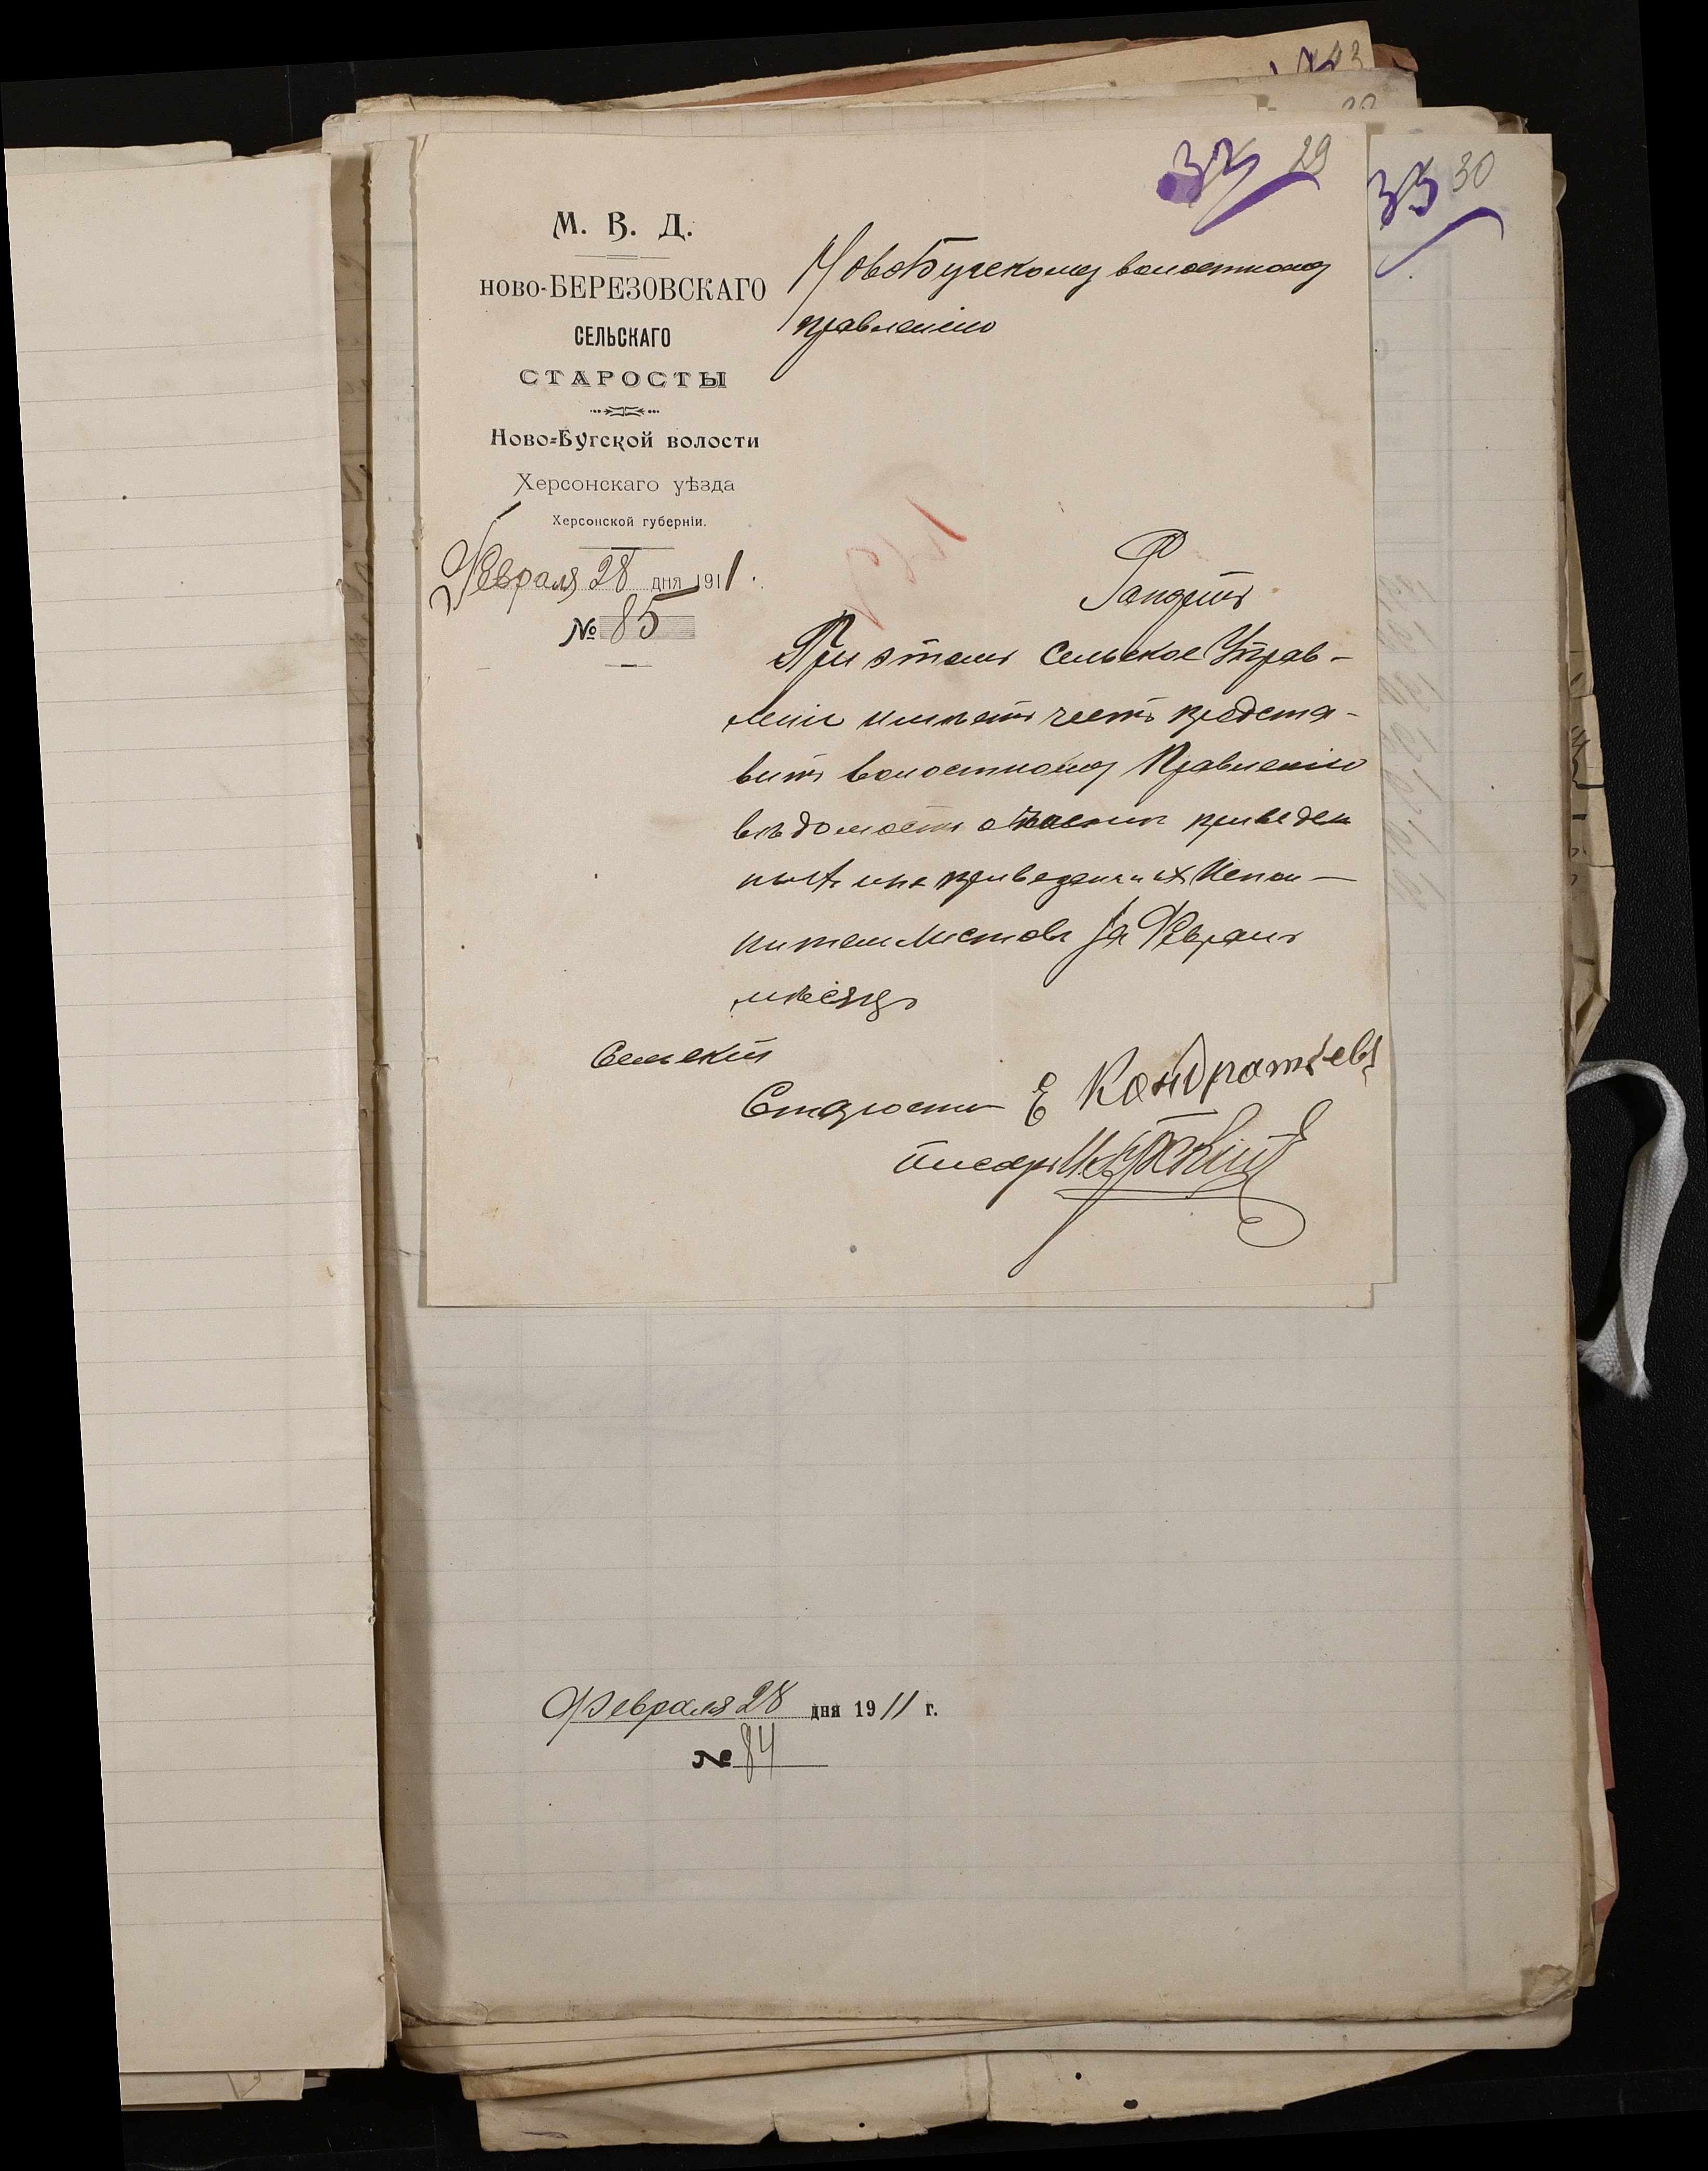 32 29
33 30
М. В. Д.
НОВО-БЕРЕЗОВСКАГО
СЕЛЬСКАГО
СТАРОСТЫ
Ново-Бугской волости
Херсонскаго уѣзда
Херсонской губерніи.
Февраля 28 дня 1911.
№ 85
НовоБугскому волостному
правленію
Рапортъ
При этомъ Сельское Управ-
леніе имѣетъ честь предста-
вить волостному Правленію
вѣдомость приведен
ныхъ и не приведенных Испол-
нител Листовъ за Февраль
мѣсяцъ
Сельскій
Староста Е Кондратьевъ
Писарь
Февраля 28 дня 1911 г.
№ 84